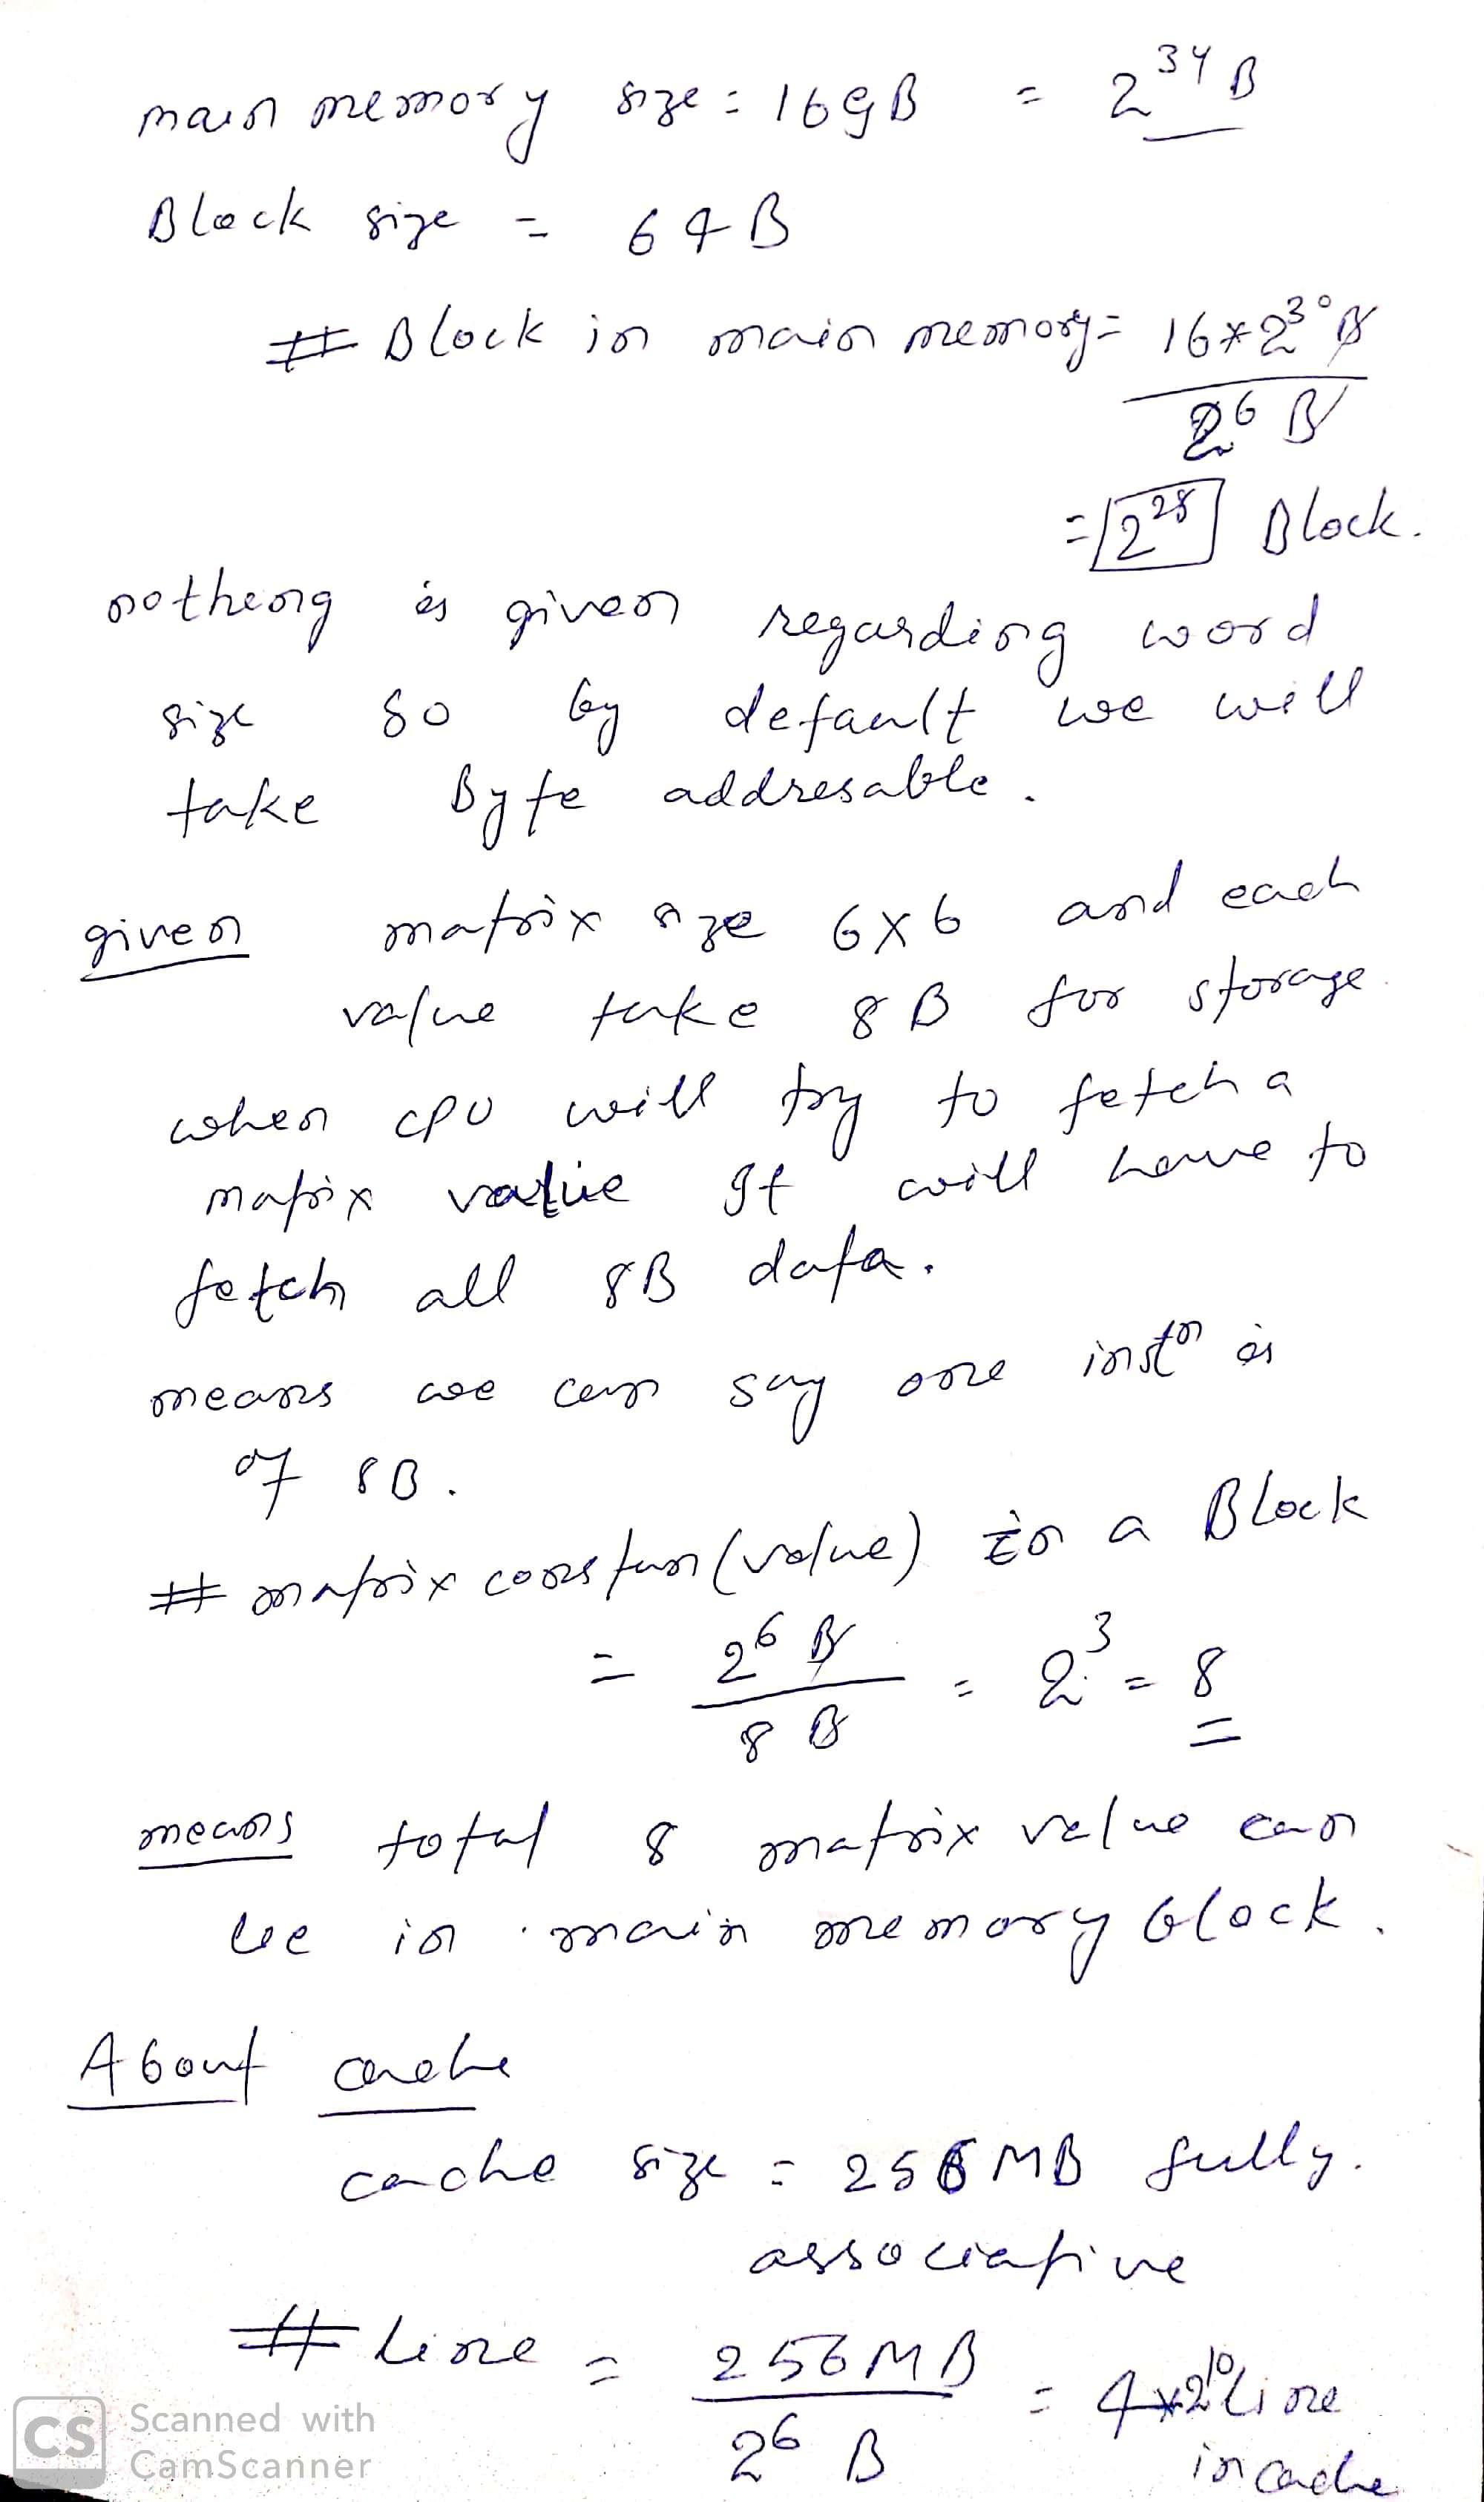 main memory size = 16gB = 2^34 B
Block size = 64B
# Block in main memory = 16*2^30 B
2^6 B
= 2^28 Block.
notheing is given regarding word
size so by default we will
take Byte addresable.
given matrix size 6x6 and each
value take 8B for storage.
when cpu will try to fetch a
matrix value It will have to
fetch all 8B data.
means we can say one instn is
of 8B.
# matrix constan (value) in a Block
= 2^6 B / 8 B = 2^3 = 8
means total 8 matrix value can
be in main memory block.
About cache
cache size = 256 MB fully.
associative
# line = 256MB / 2^6 B = 4*2^10 line
in cache
CS Scanned with
CamScanner